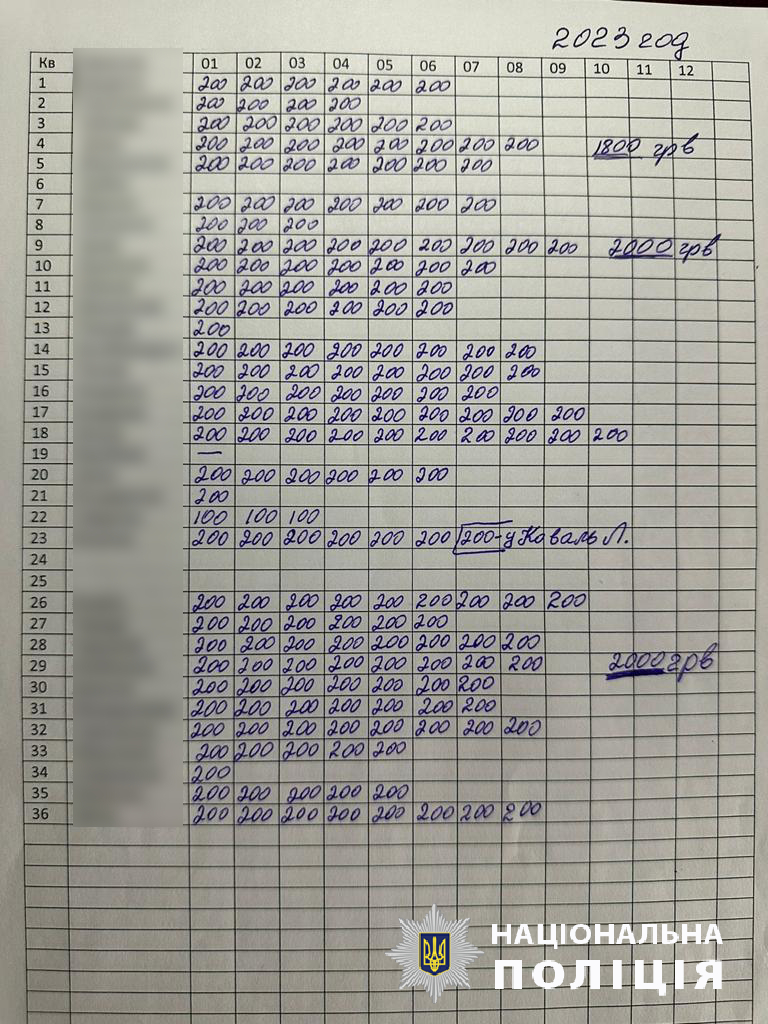 2023 год
Кв 01 02 03 04 05 06 07 08 09 10 11 12
1 200 200 200 200 200 200
2 200 200 200 200
3 200 200 200 200 200 200
4 200 200 200 200 200 200 200 200 1800 грв
5 200 200 200 200 200 200 200
6
7 200 200 200 200 200 200 200
8 200 200 200
9 200 200 200 200 200 200 200 200 200 2000 грв
10 200 200 200 200 200 200 200
11 200 200 200 200 200 200
12 200 200 200 200 200 200
13 200
14 200 200 200 200 200 200 200 200
15 200 200 200 200 200 200 200 200
16 200 200 200 200 200 200 200
17 200 200 200 200 200 200 200 200 200
18 200 200 200 200 200 200 200 200 200 200
19 —
20 200 200 200 200 200 200
21 200
22 100 100 100
23 200 200 200 200 200 200 200-у Коваль Л.
24
25
26 200 200 200 200 200 200 200 200 200
27 200 200 200 200 200 200
28 200 200 200 200 200 200 200 200
29 200 200 200 200 200 200 200 200 2000 грв
30 200 200 200 200 200 200 200
31 200 200 200 200 200 200 200
32 200 200 200 200 200 200 200 200
33 200 200 200 200 200
34 200
35 200 200 200 200 200
36 200 200 200 200 200 200 200 200
НАЦІОНАЛЬНА
ПОЛІЦІЯ